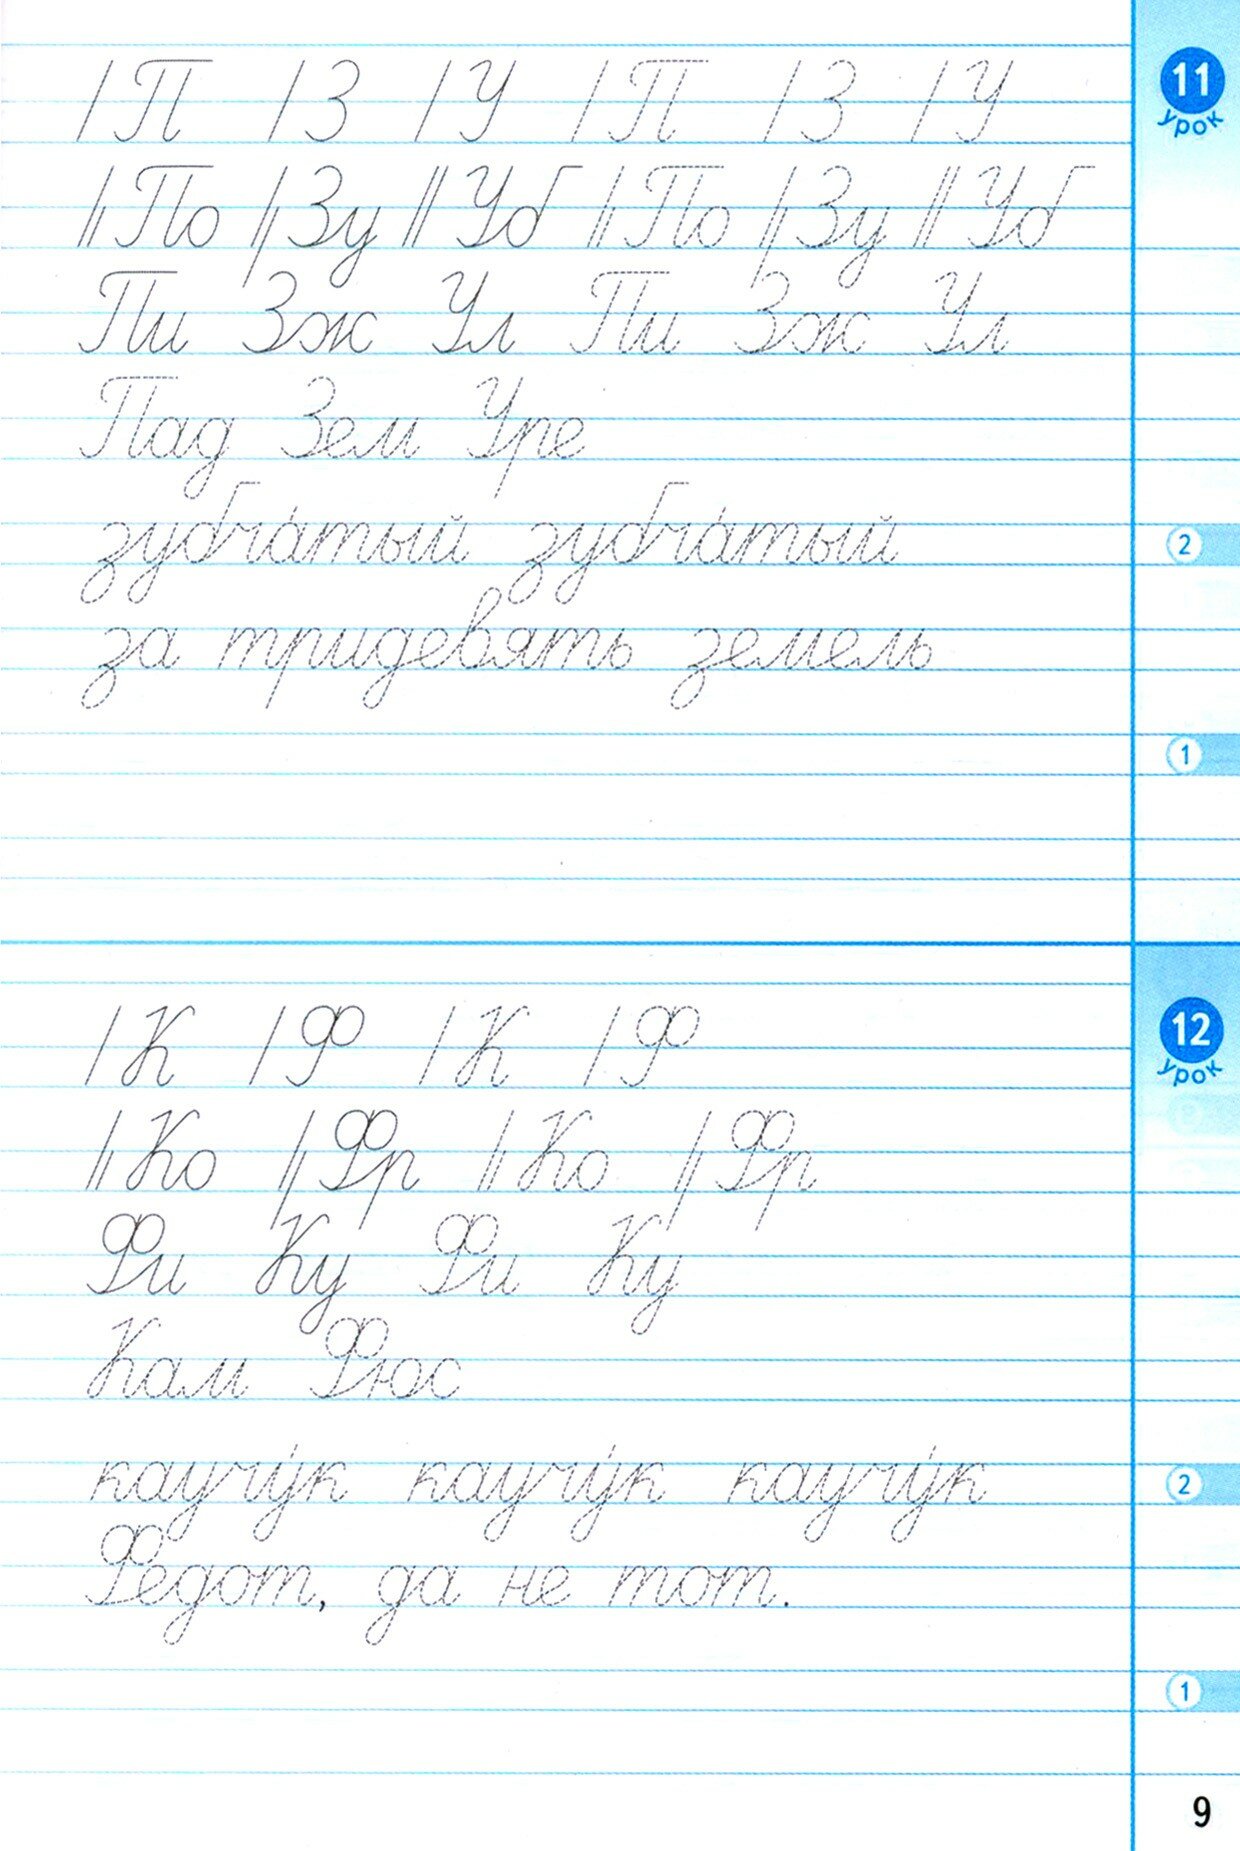 11
урок
П З У П З У
По Зу Уб По Зу Уб
Пи Зж Ул Пи Зж Ул
Пад Зем Уре
зубча́тый зубча́тый
2
за тридевять земель
1
12
урок
К Ф К Ф
Ко Фр Ко Фр
Фи Ку Фи Ку
Кам Фюс
каучу́к каучу́к каучу́к
2
Федот, да не тот.
1
9